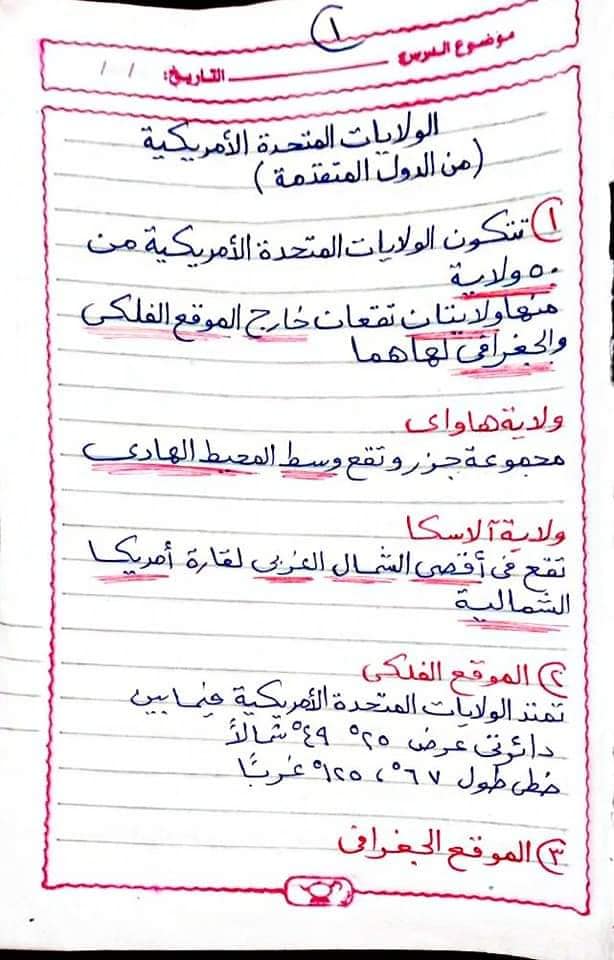 ١
موضوع الدرس
التاريخ: / /
الولايات المتحدة الأمريكية
(من الدول المتقدمة)
١ تتكون الولايات المتحدة الأمريكية من
٥٠ ولاية
منها ولايتان تقعان خارج الموقع الفلكى
والجغرافى لها هما
ولاية هاواى
مجموعة جزر وتقع وسط المحيط الهادى
ولاية آلاسكا
تقع فى أقصى الشمال الغربى لقارة أمريكا
الشمالية
٢) الموقع الفلكى
تمتد الولايات المتحدة الأمريكية فيما بين
دائرتى عرض ٢٥° ٤٩° شمالاً
خطى طول ٦٧° ، ١٢٥° غربًا
٣) الموقع الجغرافى